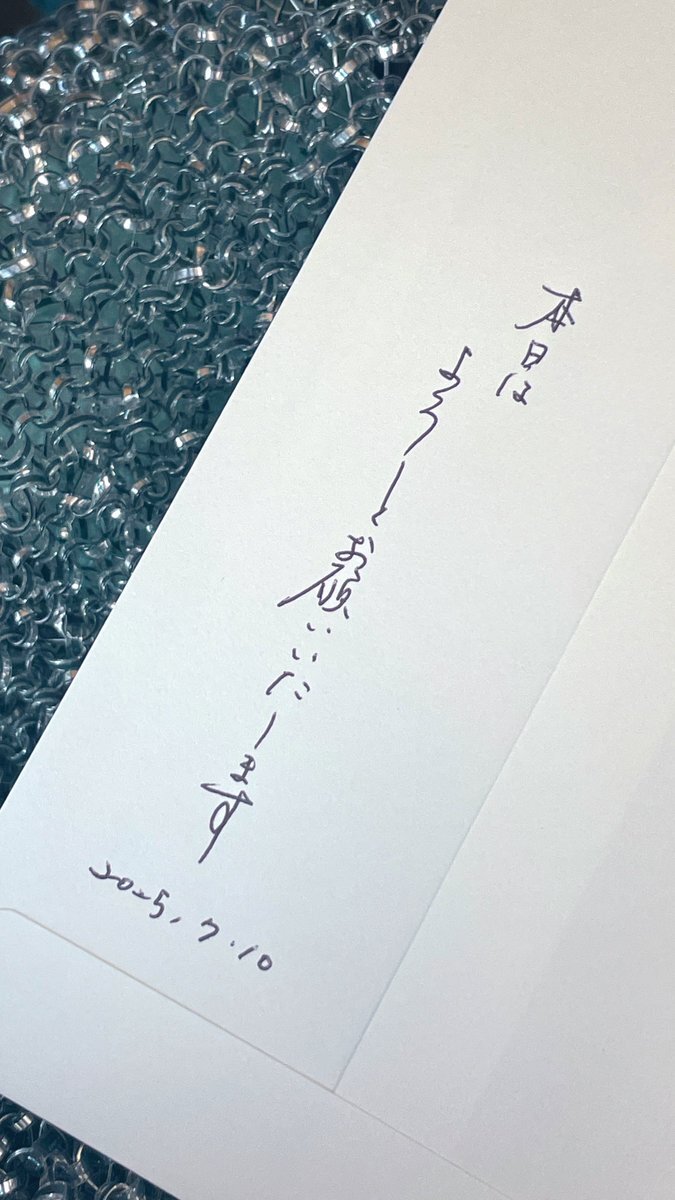 本日は
よろしくお願いいたします
2025.7.10